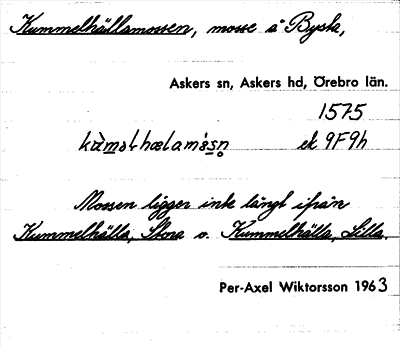 Kummelhällsmossen, mosse å Bysta,
Askers sn, Askers hd, Örebro län.
1575
ek 9F9h
Mossen ligger inte långt ifrån
Kummelhälla, Stora o. Kummelhälla, Lilla.
Per-Axel Wiktorsson 1963